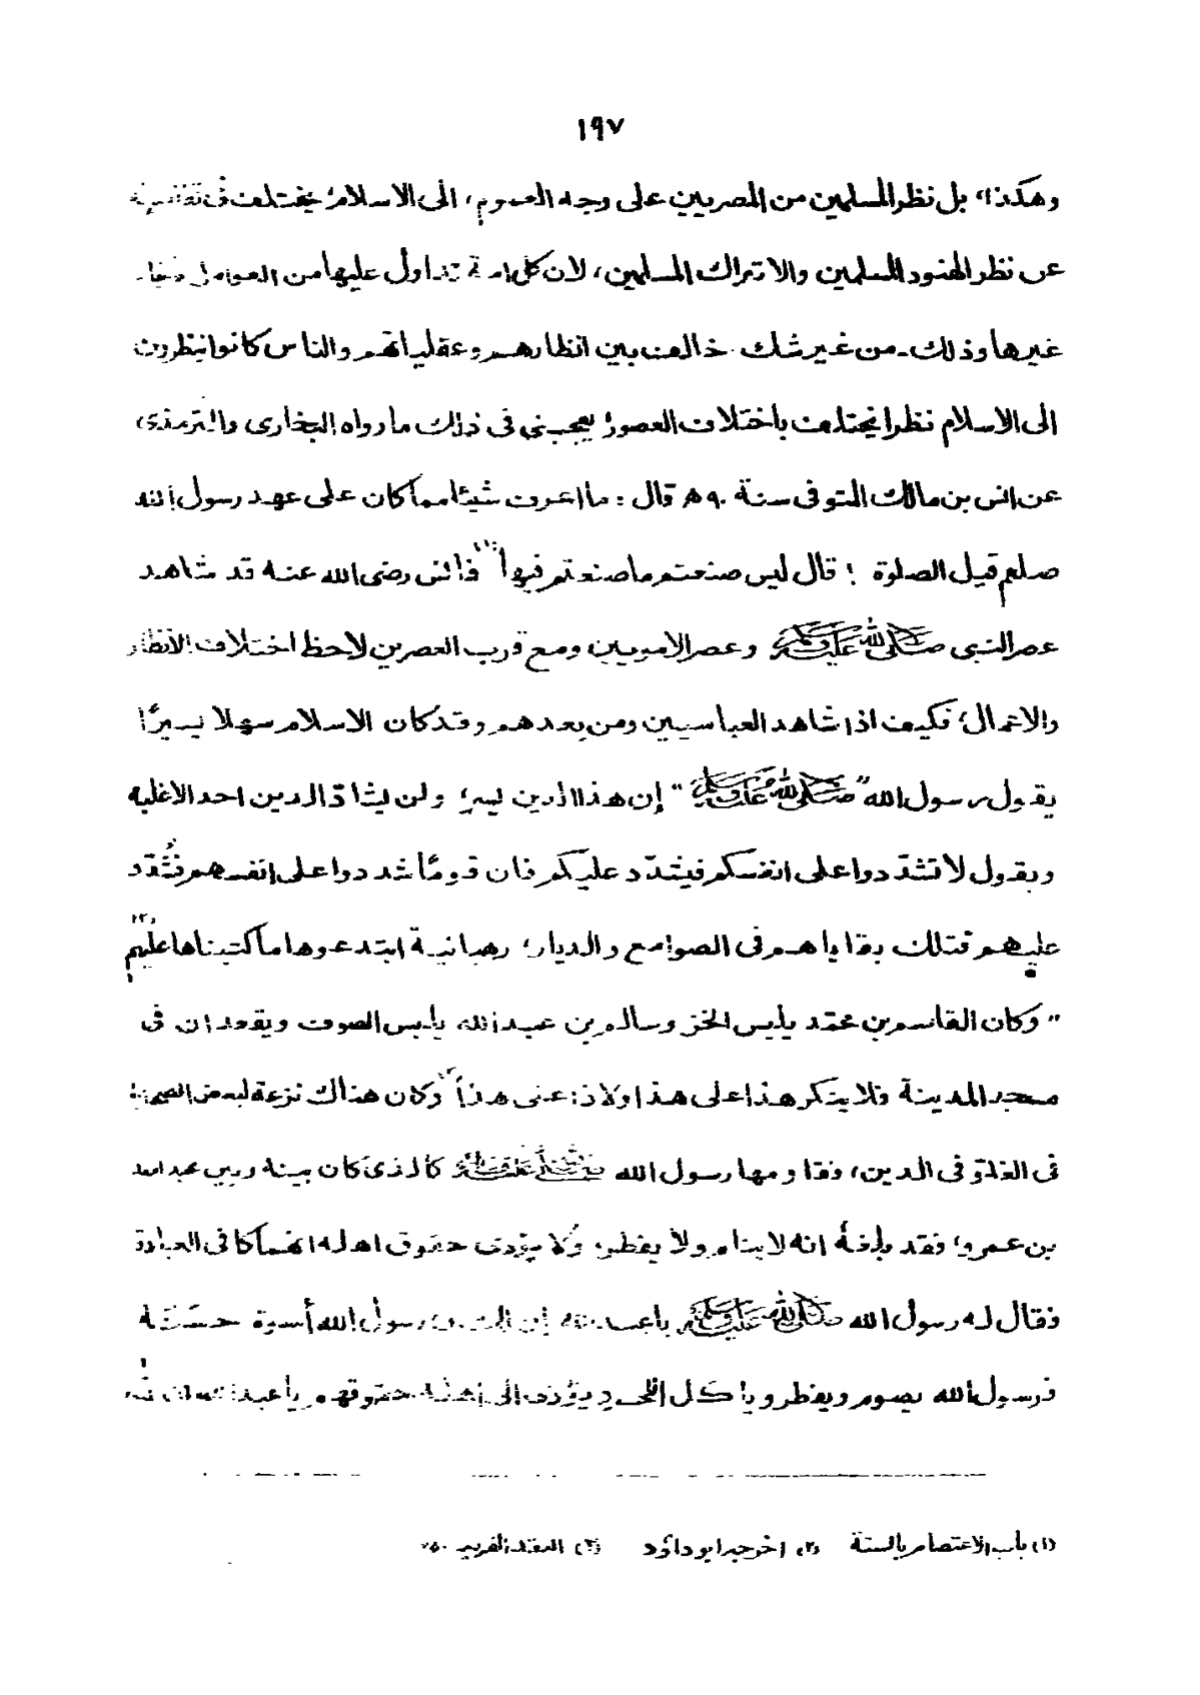 ١٩٧
وهكذا، بل نظر المسلمين من المصريين على وجه العموم، الى الاسلام يختلف فى
عن نظر الهنود المسلمين والاتراك المسلمين، لان كل امة تداول عليها من العوامل
غيرها وذلك - من غير شك خالف بين انظارهم وعقلياتهم والناس كانوا ينظرون
الى الاسلام نظرا يختلف باختلاف العصور يعجبنى فى ذلك ما رواه البخارى والترمذى
عن انس بن مالك المتوفى سنة ٩٠ھ قال : ما اعرف شيئا مما كان على عهد رسول الله
صلعم قيل الصلوة ! قال ليس صنعتم ما صنعتم فيها" (١) فانس رضى الله عنه قد شاهد
عصر النبى صلى الله عليه وسلم وعصر الامويين ومع قرب العصرين لاحظ اختلاف الانظار
والاعمال؛ فكيف اذا شاهد العباسيين ومن بعدهم وقد كان الاسلام سهلا يسيرًا
يقول رسول الله "صلى الله عليه وسلم" إن هذا الدين يسر؛ ولن يشادّ الدين احد الاغلبه
ويقول لا تشدّدوا على انفسكم فيشدّد عليكم فان قومًا شددوا على انفسهم فشُدّد
عليهم فتلك بقاياهم فى الصوامع والديار؛ رهبانية ابتدعوها ما كتبناها عليهم (٢)
" وكان القاسم بن محمّد يلبس الخز وسالم بن عبد الله يلبس الصوف ويقعدان فى
مسجد المدينة فلا ينكر هذا على هذا ولا ذا على هذا" (٣) وكان هناك نزعة لبعض الصحابة
فى الغلوّ فى الدين، فقاومها رسول الله صلى الله عليه وسلم كالذى كان بينه وبين عبد الله
بن عمرو؛ فقد بلغهُ انه لا ينام ولا يفطر؛ ولا يؤدى حقوق اهله انهماكا فى العبادة
فقال له رسول الله صلى الله عليه وسلم يا عبد الله إن لك فى رسول الله أسوة حسنة
فرسول الله يصوم ويفطر ويأكل اللحم ويؤدى الى اهله حقوقهم يا عبد الله ان لله
(١) باب الاعتصام بالسنة (٢) اخرجه ابو داؤد (٣) العقد الفريد